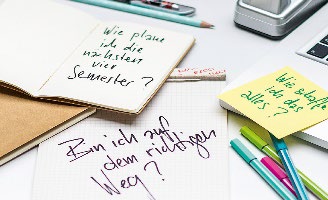 Wie plane
ich die
nächsten
vier
Semester?
Bin ich auf
dem richtigen
Weg?
Wie schaffe
ich das
alles?